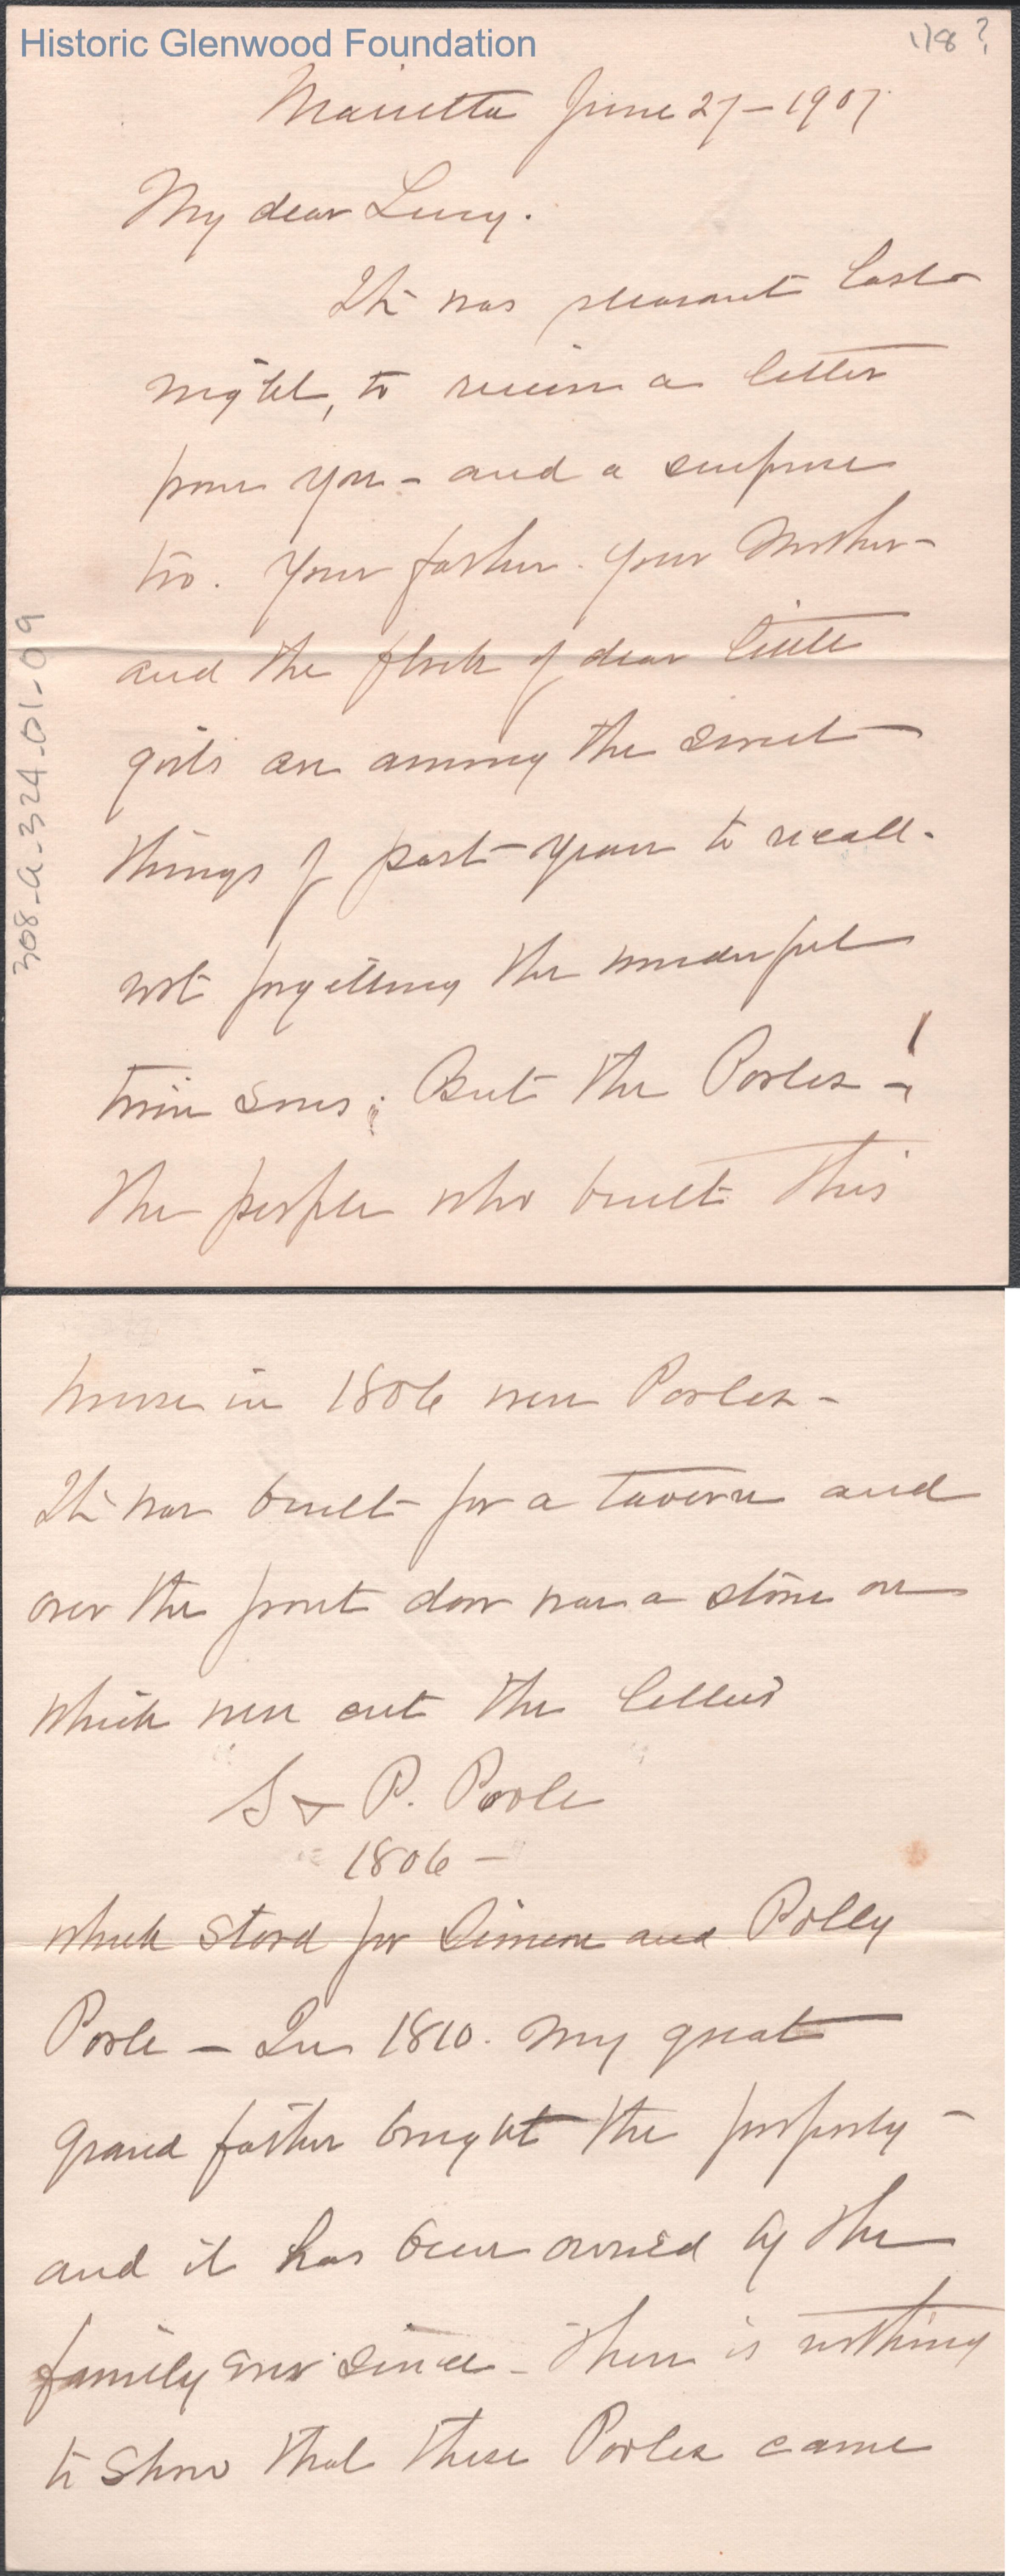 Historic Glenwood Foundation
1/8?
Marietta June 27 - 1907
My dear Lucy.
It was pleasant last
night, to receive a letter
from you - and a surprise
too. Your father. your Mother -
and the flock of dear little
girls are among the sweet
things of past years to recall -
not forgetting the wonderful
twin sons; But the Pooles - !
The people who built this
308-a-324-01-09
house in 1806 were Pooles -
It was built for a tavern and
over the front door was a stone on
which were cut the letters
S & P. Poole
1806 -
which stood for Simeon and Polly
Poole - In 1810. My great
grand father bought the property -
and it has been owned by the
family ever since - There is nothing
to show that these Pooles came